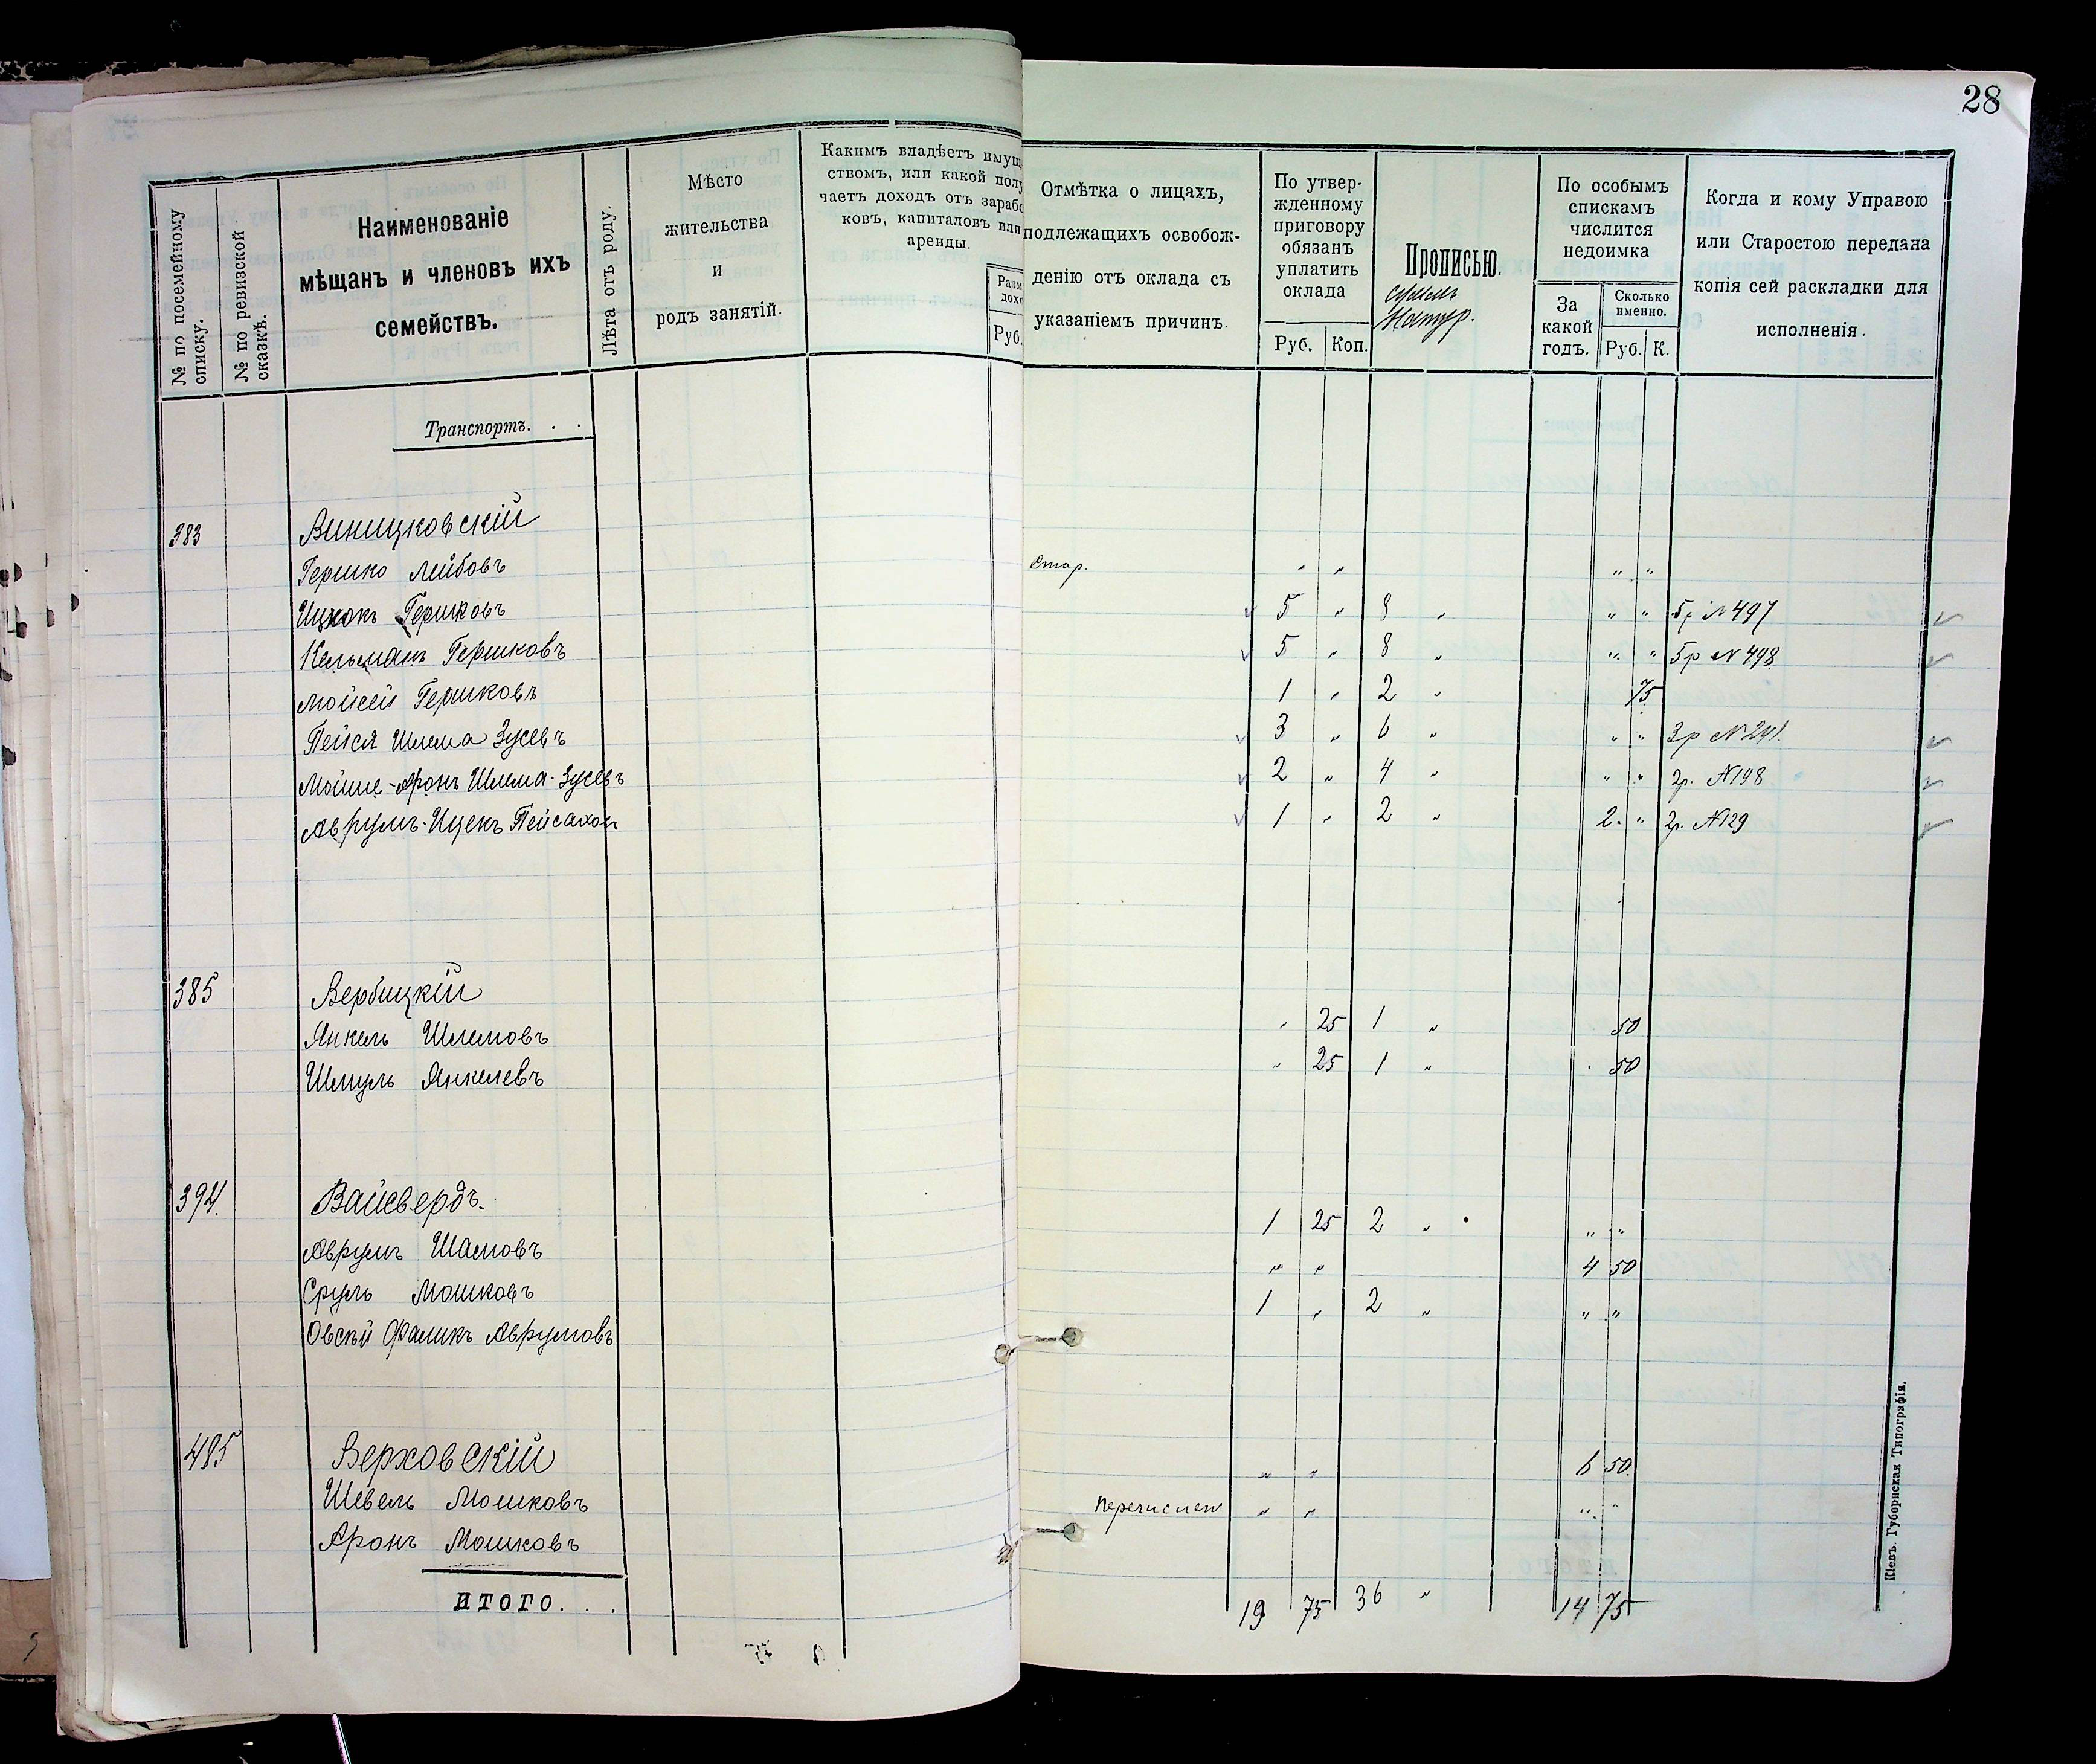 28
№ по посемейному списку.
№ по ревизской сказкѣ.
Наименованіе
мѣщанъ и членовъ ихъ
семействъ.
Лѣта отъ роду.
Мѣсто
жительства
и
родъ занятій.
Какимъ владѣетъ имущ
ствомъ, или какой полу
чаетъ доходъ отъ зарабо
ковъ, капиталовъ или
аренды.
Разм
дохо
Руб.
Отмѣтка о лицахъ,
подлежащихъ освобож-
денію отъ оклада съ
указаніемъ причинъ.
По утвер-
жденному
приговору
обязанъ
уплатить
оклада
Руб. Коп.
Прописью.
По особымъ
спискамъ
числится
недоимка
За
какой
годъ.
Сколько
именно.
Руб. К.
Когда и кому Управою
или Старостою передана
копія сей раскладки для
исполненія.
Транспортъ. . .
383 Виницковскій
Гершко Лейбовъ Стар. „ „ „ „
Ицкокъ Гершковъ 5 „ 8 „ „ „ 5р N 497
Кельманъ Гершковъ 5 „ 8 „ „ „ 5р N 498
Мойсей Гершковъ 1 „ 2 „ 75
Пейся Шлема Зусевъ 3 „ 6 „ „ „ 3р N 241.
Мойше-Аронъ Шлема-Зусевъ 2 „ 4 „ „ „ 2р. N198
Аврумъ-Ицекъ Пейсахов 1 „ 2 „ 2. „ 2р. N129
385 Вербицкій
Янкель Шлемовъ „ 25 1 „ 50
Шмуль Янкелевъ „ 25 1 „ 50
394. Вайсвердъ.
1 25 2 „ „ „
Аврумъ Шамовъ
„ „ 4 50
Сруль Мошковъ
1 „ 2 „ „ „
Овсѣй Фаликъ Аврумовъ
485 Верховскій
„ „ 6 50.
Шевель Мошковъ
перечислен „ „ „ „
Аронъ Мошковъ
ИТОГО. . .
19 75 36 „ 14 75
Кіевъ. Губернская Типографія.